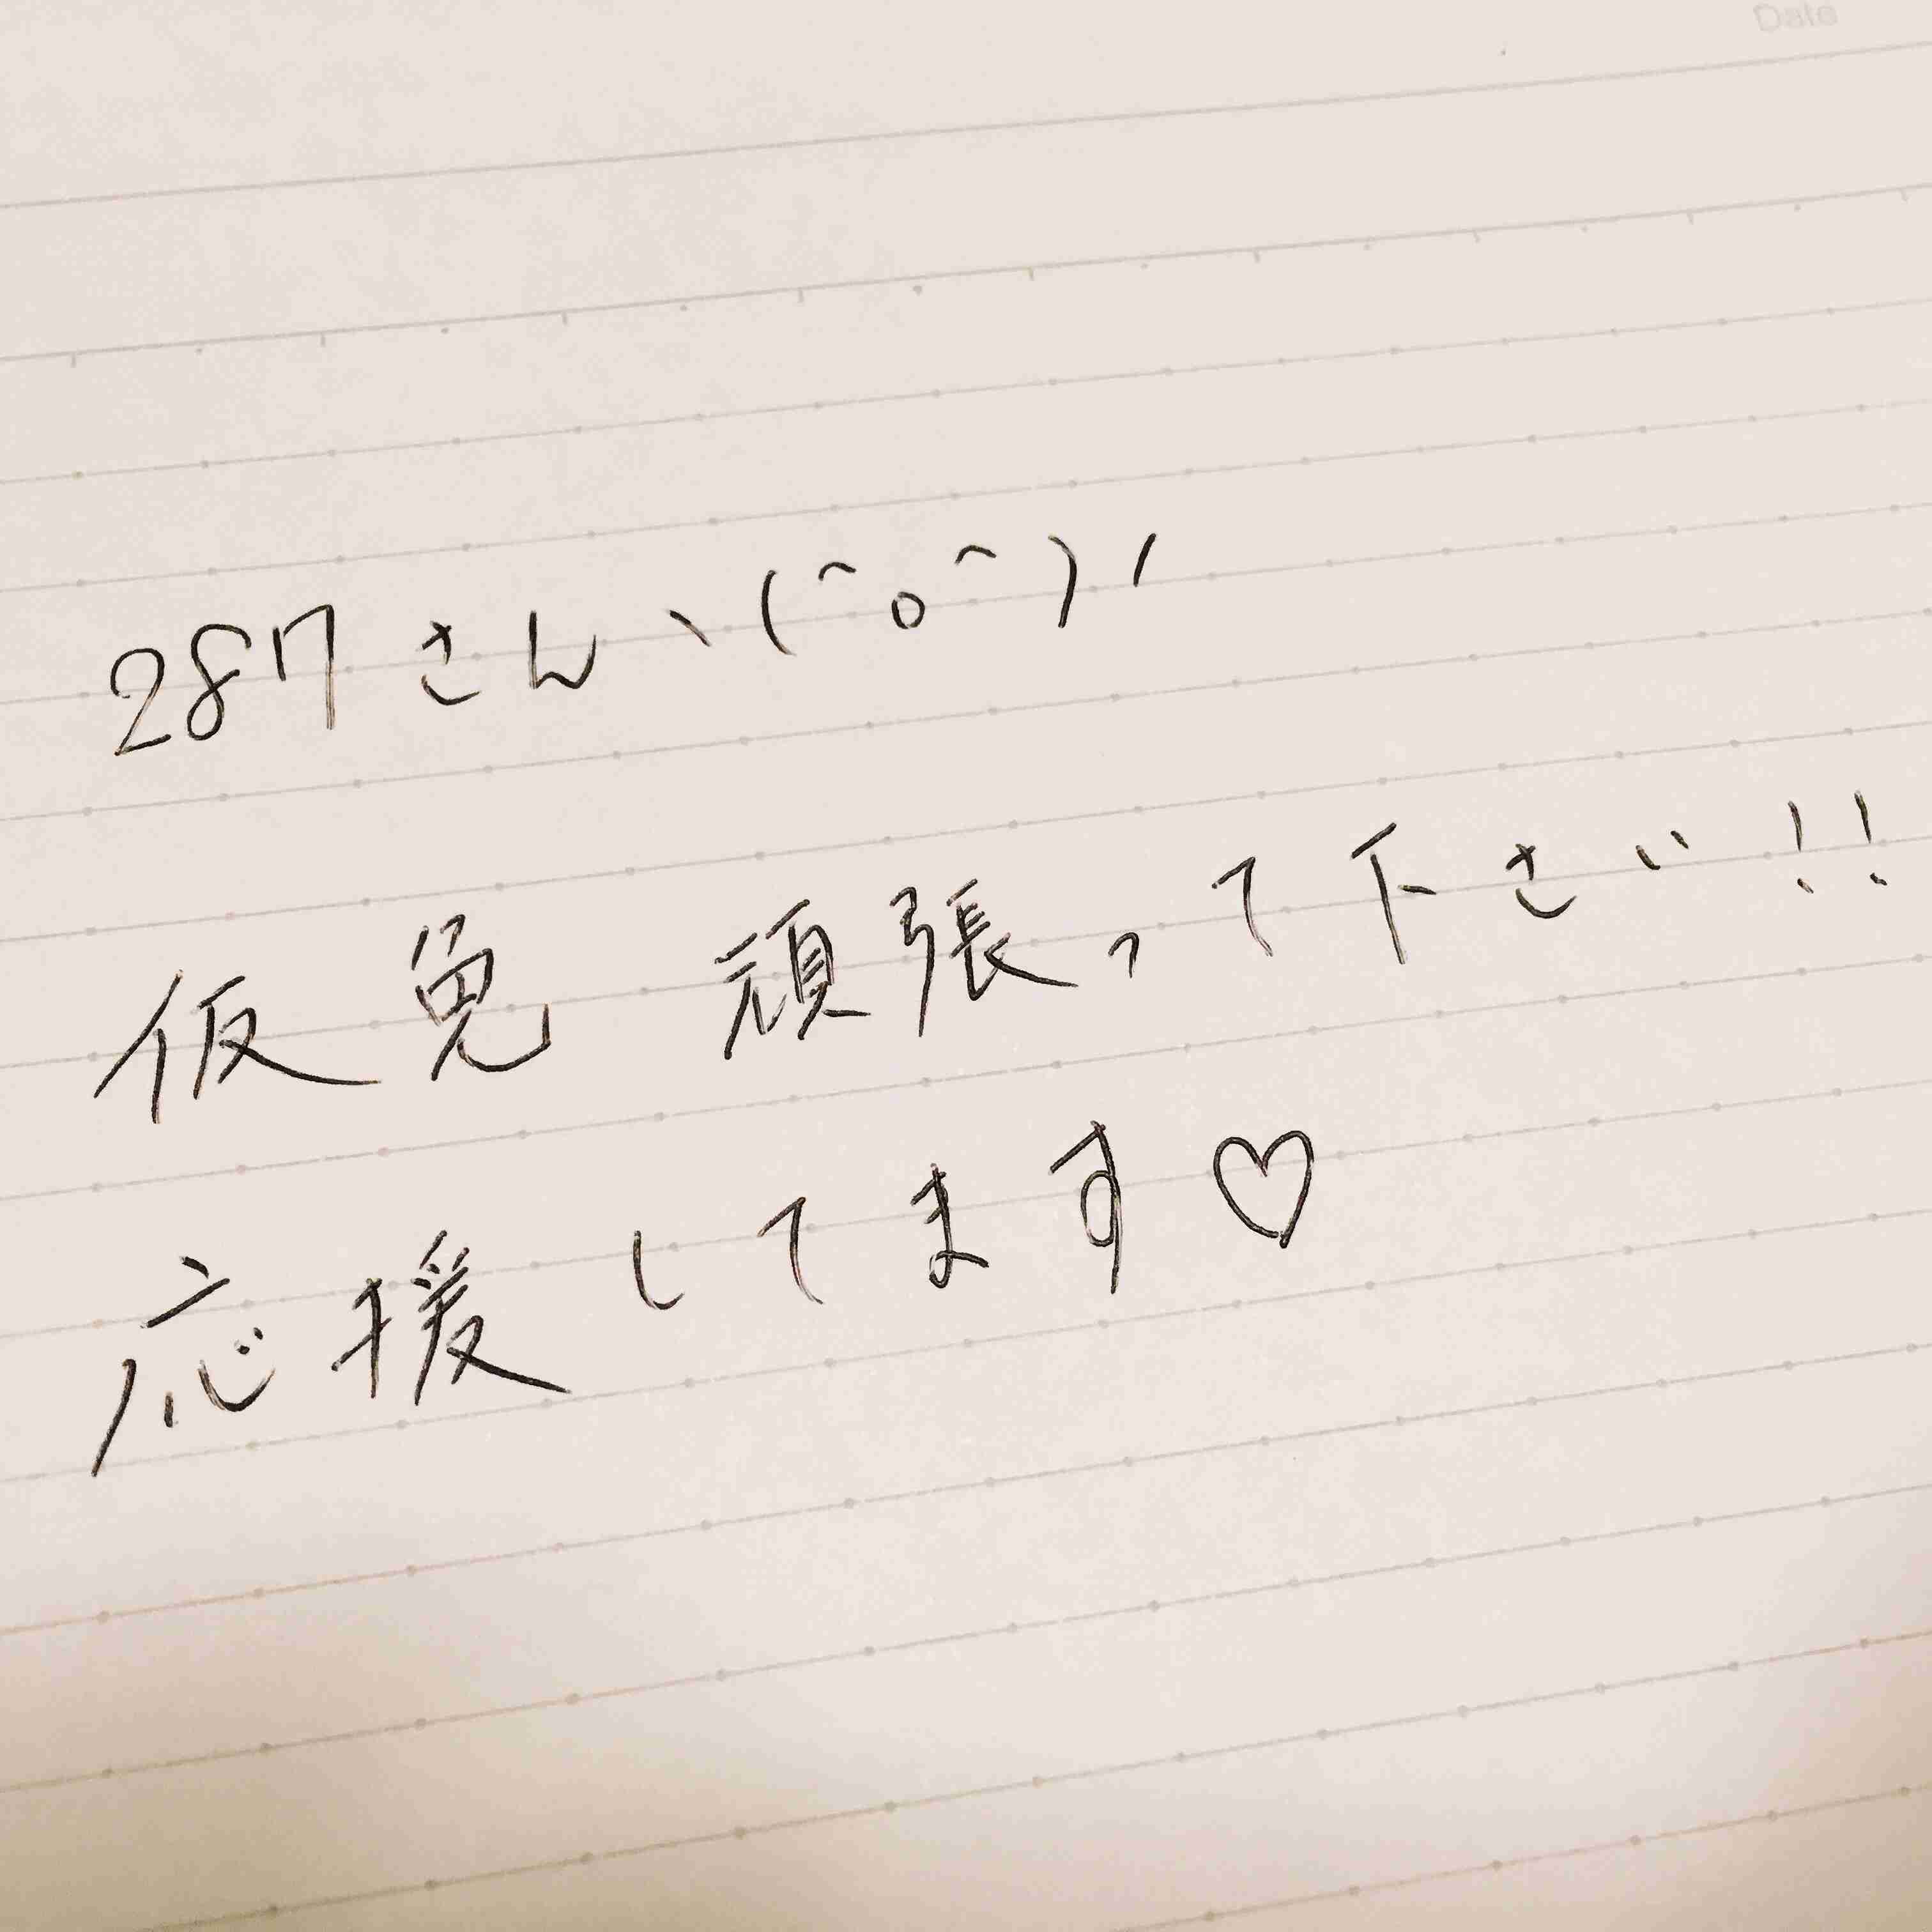 Date
287さん ヽ(^o^)ノ
仮免 頑張って下さい!!
応援してます♡